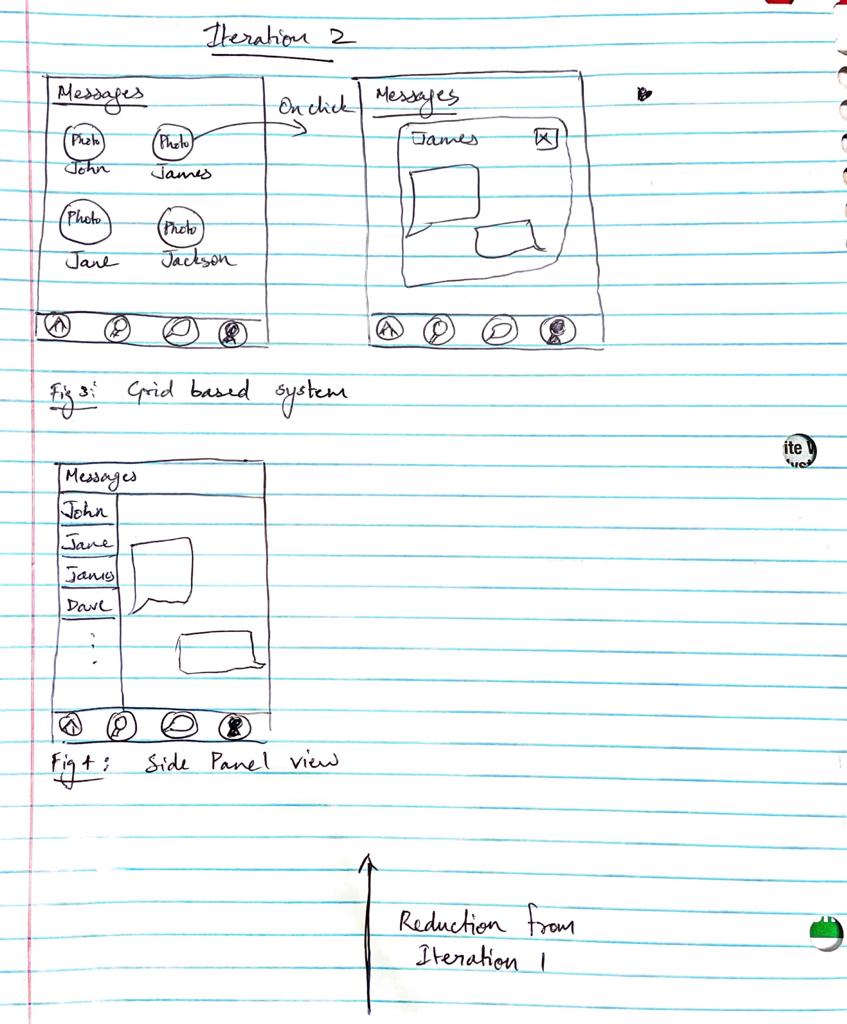 Iteration 2
Messages
Photo
Photo
John
James
Photo
Photo
Jane
Jackson
On click
Messages
James
X
Fig 3: Grid based system
Messages
John
Jane
James
Dave
Fig 4: Side Panel view
Reduction from
Iteration 1